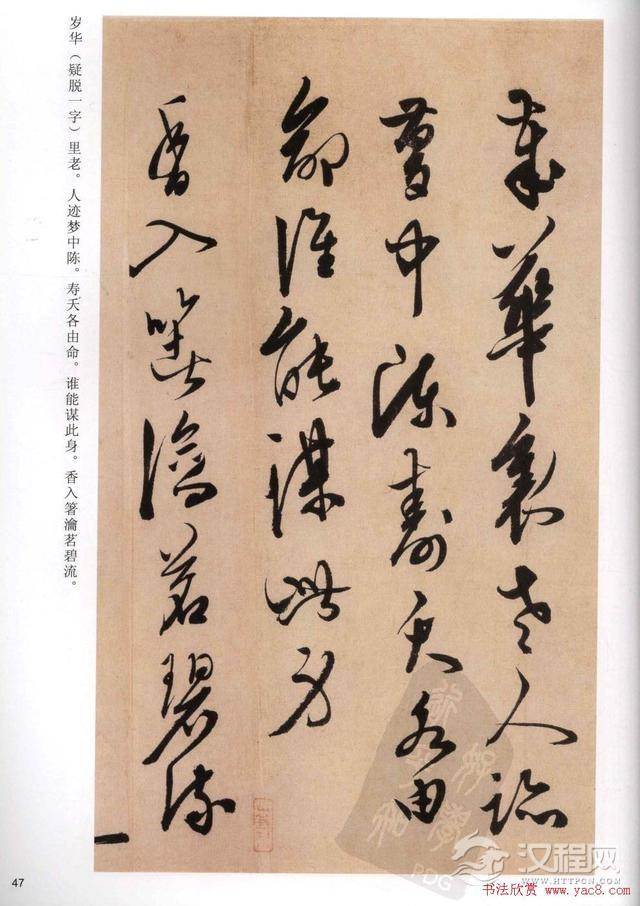 歲華裏老人跡
夢中陳壽夭各由
命誰能謀此身
香入箸瀹茗碧流
岁华（疑脱一字）里老。人迹梦中陈。寿夭各由命。谁能谋此身。香入箸瀹茗碧流。
47
PDG
汉程网
HTTPCN.COM
书法欣赏 www.yac8.com